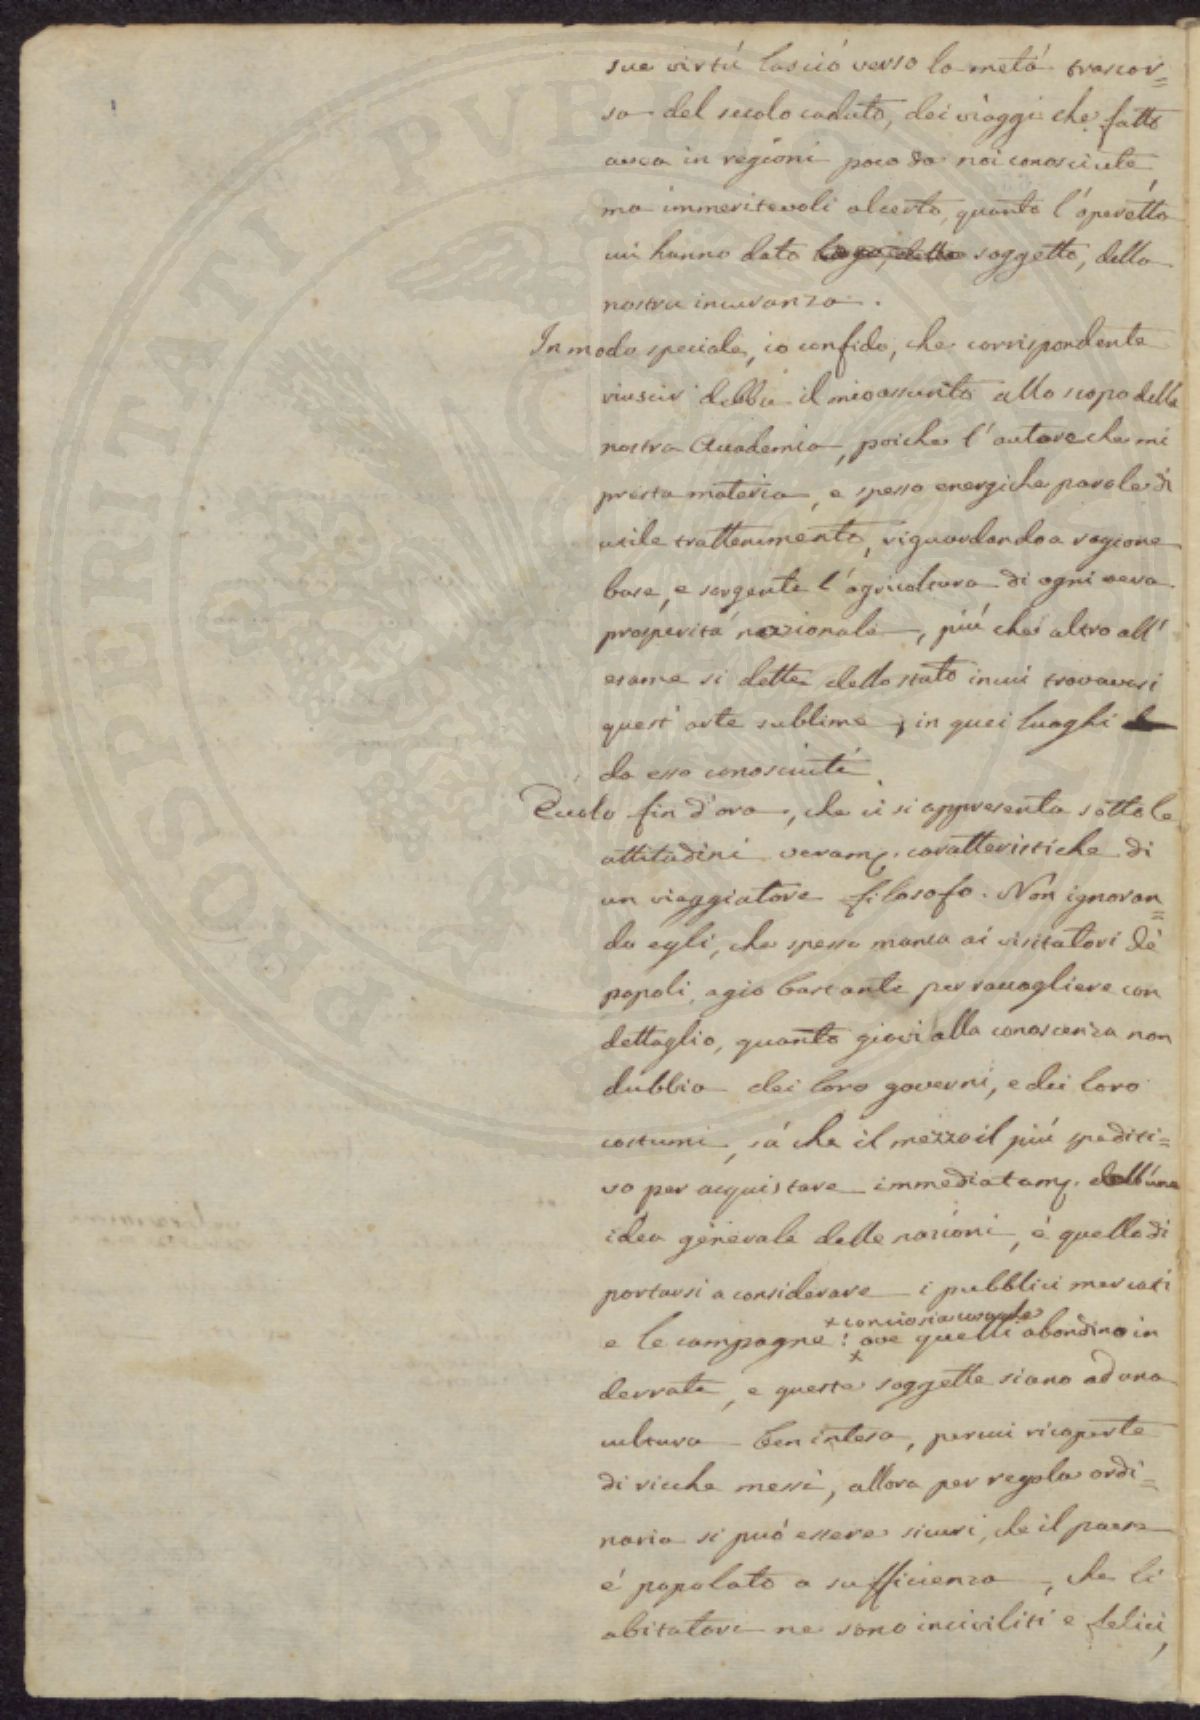 sue virtú lasció verso la metá trascor=
sa del secolo caduto, dei viaggi che fatto
avea in regioni poco da noi conosciute,
ma immeritevoli alcerto, quanto l'operetta
cui hanno dato soggetto, della
nostra incuranza.
In modo speciale, io confido, che corrispondente
riuscir debba il mio assunto allo scopo della
nostra Accademia, poiche l'autore che mi
presta materia, e spesso energiche parole di
utile trattenimento, riguardando a ragione
base, e sorgente l'agricoltura di ogni vera
prosperitá nazionale, piú che altro all'
esame si dette dello stato in cui trovavasi
quest'arte sublime, in quei luoghi
da esso conosciuti.
fin d'ora, che ci si appresenta sotto le
attitudini veram. caratteristiche di
un viaggiatore filosofo. Non ignoran=
do egli, che spesso manca ai visitatori dé
popoli, agio bastante per raccogliere con
dettaglio, quanto giovi alla conoscenza non
dubbia dei loro governi, e dei loro
costumi, sá che il mezzo il piú spediti=
vo per acquistare immediatam. un'
idea generale delle nazioni, é quello di
portarsi a considerare i pubblici mercati
+ conciosiacosache
e le campagne: + ove quelli abondino in
derrate, e queste soggette siano ad una
cultura ben intesa, percui ricoperte
di ricche messi, allora per regola ordi=
naria si puó essere sicuri, che il paese
é popolato a sufficienza, che li
abitatori ne sono inciviliti e felici,
POSTERITATI PVBLICO